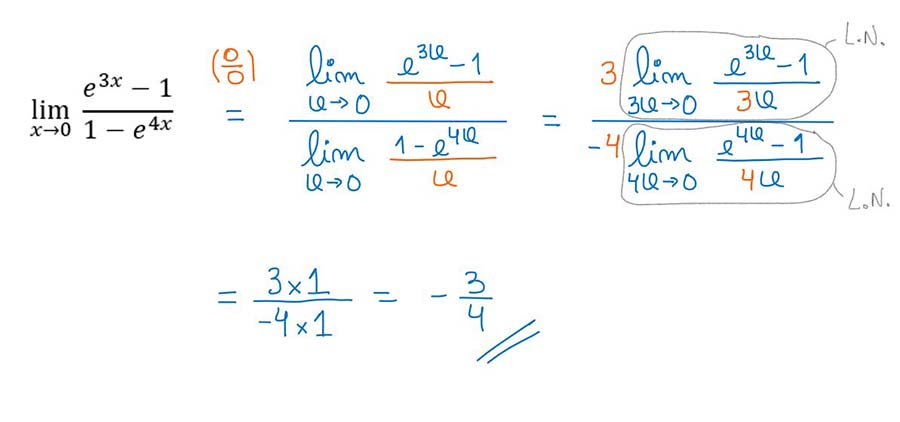 lim x→0 (e^{3x} − 1)/(1 − e^{4x}) (0/0) = (lim x→0 (e^{3x} − 1)/x)/(lim x→0 (1 − e^{4x})/x) = (3 lim 3x→0 (e^{3x} − 1)/(3x))/(−4 lim 4x→0 (e^{4x} − 1)/(4x)) L.N. L.N.
= (3×1)/(−4×1) = −3/4